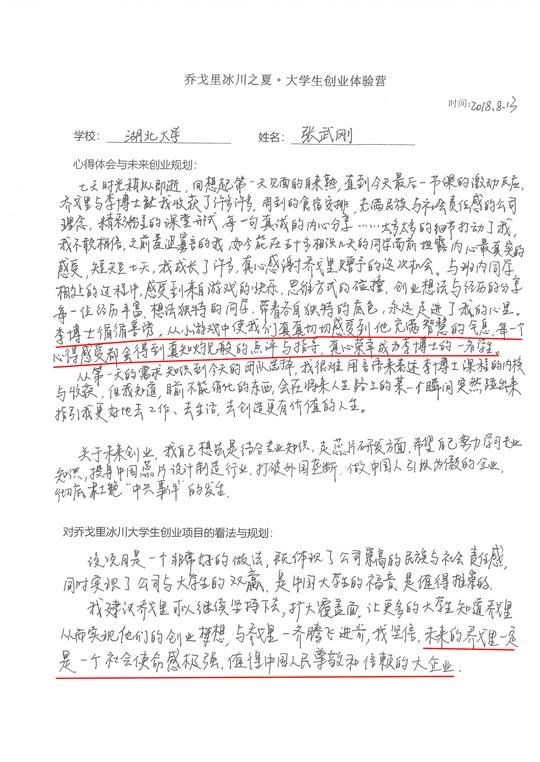 乔戈里冰川之夏·大学生创业体验营
时间:2018.8.13
学校: 湖北大学 姓名: 张武刚
心得体会与未来创业规划:
七天时光稍纵即逝,回想起第一天见面的自来熟,直到今天最后一节课的激动反应,
乔戈里与李博士让我收获了许多许多,周到的食宿安排,充满民族与社会责任感的公司
理念,精彩的课堂形式,每一句真诚的内心分享……太多太多的细节打动了我,
我不敢相信,之前羞涩寡言的我,如今能在五十多相识几天的同学面前坦露内心最真实的
感受,短短七天,我成长了许多,真心感谢乔戈里赠予的这次机会。与班内同学
相处的过程中,感受到来自游戏的快乐,思维方式的碰撞,创业想法与经历的分享
每一位经历丰富,想法独特的同学,带着各自独特的底色,永远走进了我的心里。
李博士循循善诱,从小游戏中使我们真真切切感受到他充满智慧的气息,每一个
心得感受都会得到真知灼见般的点评与指导,真心荣幸成为李博士的一名学生。
从第一天的需求知识到今天的团队选择,我很难用言语来表述李博士课程的内核
与收获,但我知道,目前不能消化的东西,会在将来人生路上的某一个瞬间突然蹦出来
指引我更好地去工作、去生活,去创造更有价值的人生。
关于未来创业,我自己想法是结合专业知识,走芯片研究方面,希望自己努力学习专业
知识,投身中国芯片设计制造行业,打破外国垄断,做中国人引以为傲的企业,
彻底杜绝“中兴事件”的发生。
对乔戈里冰川大学生创业项目的看法与规划:
该项目是一个非常好的做法,既体现了公司崇高的民族与社会责任感,
同时实现了公司与大学生的双赢,是中国大学生的福音,是值得推崇的。
我建议乔戈里可以继续坚持下去,扩大覆盖面,让更多的大学生知道乔戈里
从而实现他们的创业梦想,与乔戈里一齐腾飞进步,我坚信,未来的乔戈里一定
是一个社会使命感极强,值得中国人民尊敬和信赖的大企业.